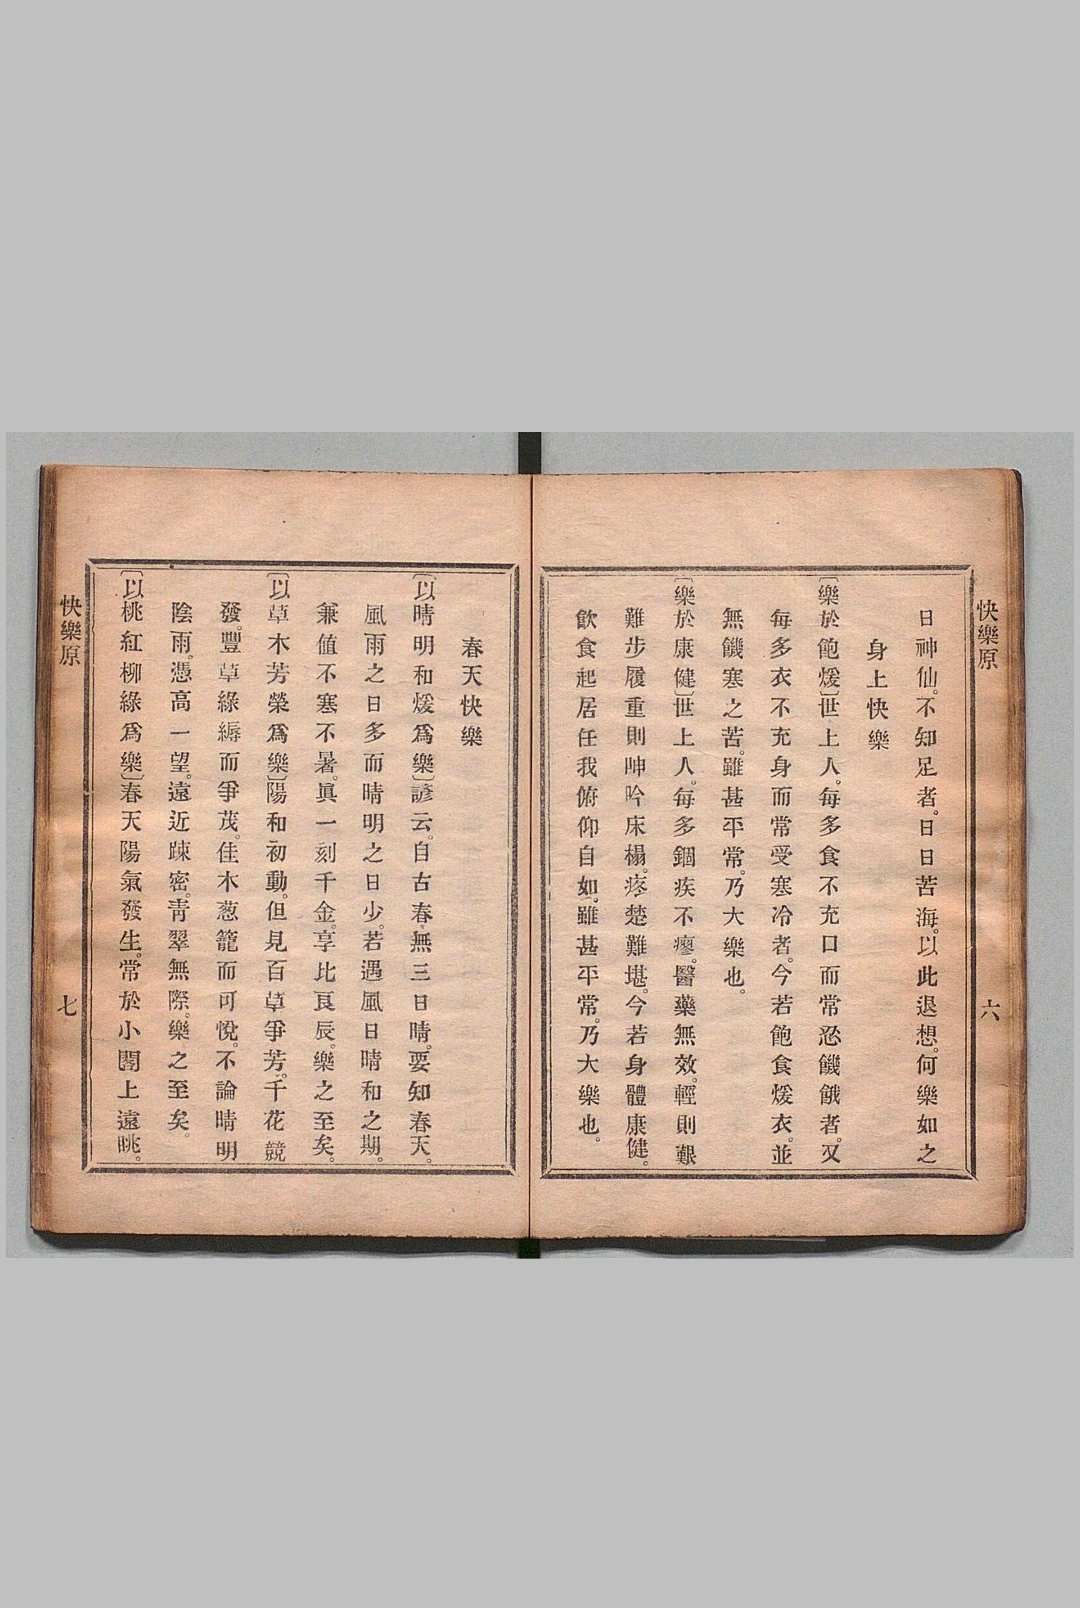 快樂原
六
日神仙。不知足者。日日苦海。以此退想。何樂如之
身上快樂
〔樂於飽煖〕世上人。每多食不充口而常忍饑餓者。又
每多衣不充身而常受寒冷者。今若飽食煖衣。並
無饑寒之苦。雖甚平常。乃大樂也。
〔樂於康健〕世上人。每多錮疾不瘳。醫藥無效。輕則艱
難步履重則呻吟床榻。疼楚難堪。今若身體康健。
飲食起居任我俯仰自如。雖甚平常。乃大樂也。
春天快樂
〔以晴明和煖爲樂〕諺云。自古春無三日晴。要知春天。
風雨之日多而晴明之日少。若遇風日晴和之期。
兼値不寒不暑。眞一刻千金。享比良辰。樂之至矣。
〔以草木芳榮爲樂〕陽和初動。但見百草爭芳。千花競
發。豐草綠縟而爭茂。佳木葱籠而可悅。不論晴明
陰雨。憑高一望。遠近疎密。靑翠無際。樂之至矣。
〔以桃紅柳綠爲樂〕春天陽氣發生。常於小閣上遠眺。
快樂原
七